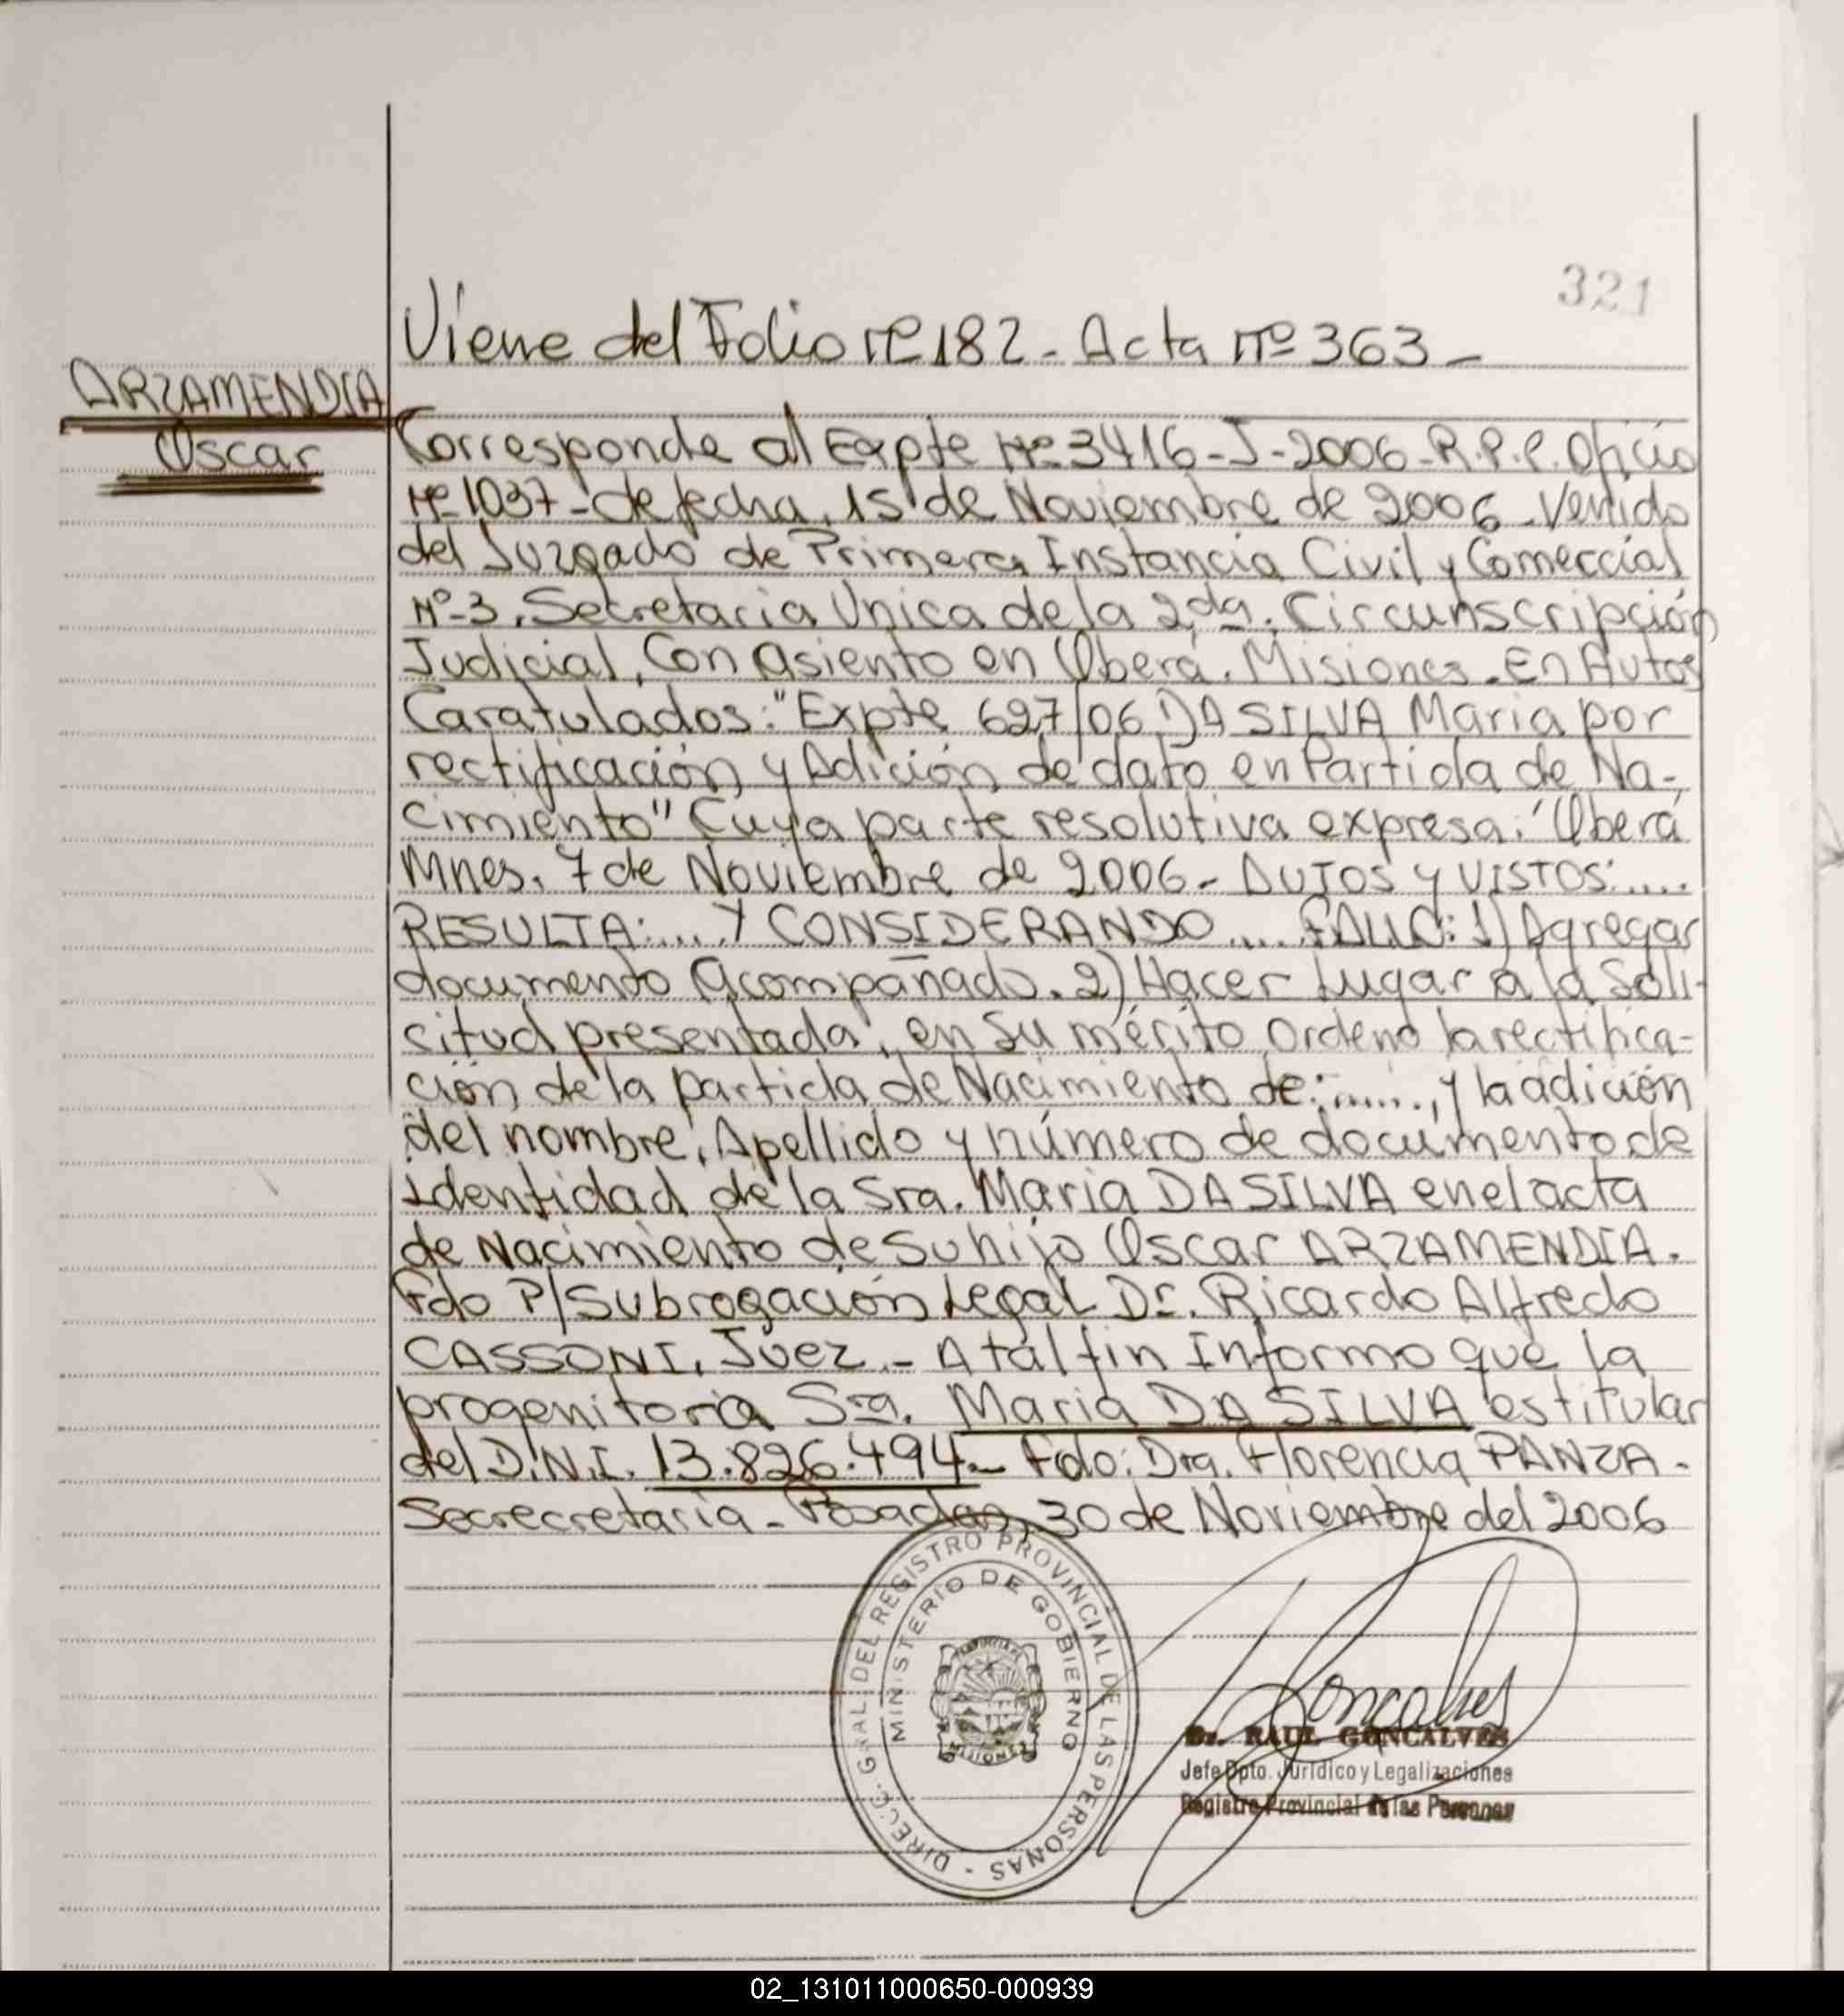 321
Viene del Folio nº 182 - Acta nº 363 -
ARZAMENDIA
Oscar
Corresponde al Expte Nº 3416-J-2006-R.P.P. Oficio
Nº 1037 - de fecha, 15 de Noviembre de 2006 - Venido
del Juzgado de Primera Instancia Civil y Comercial
Nº-3, Secretaria Unica de la 2da. Circunscripción
Judicial, Con asiento en Oberá. Misiones. En Autos
Caratulados: "Expte 627/06 DA SILVA Maria por
rectificación y Adición de dato en Partida de Na-
cimiento" Cuya parte resolutiva expresa: "Oberá
Mnes, 7 de Noviembre de 2006 - AUTOS y VISTOS:....
RESULTA:.... Y CONSIDERANDO .... FALLO: 1) Agregar
documento Acompañado. 2) Hacer Lugar a la Soli-
citud presentada, en Su mérito Ordeno la rectifica-
ción de la partida de Nacimiento de:......, y la adición
del nombre, Apellido y número de documento de
Identidad de la Sra. Maria DA SILVA en el acta
de Nacimiento de Su hijo Oscar ARZAMENDIA.
Fdo P/Subrogación Legal Dr. Ricardo Alfredo
CASSONI, Juez - A tal fin Informo que la
progenitora Sra. Maria DA SILVA es titular
del D.N.I. 13.826.494 - Fdo: Dra. Florencia PANZA -
Secrecretaria - Posadas, 30 de Noviembre del 2006
DIRECC. GRAL. DEL REGISTRO PROVINCIAL DE LAS PERSONAS -
MINISTERIO DE GOBIERNO
PROVINCIA DE
MISIONES
Goncalves
Dr. RAUL GONCALVES
Jefe Dpto. Jurídico y Legalizaciones
Registro Provincial de las Personas
02_131011000650-000939